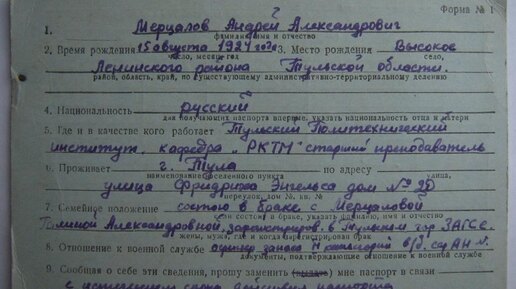 Форма № 1
1. Мерцалов Андрей Александрович
фамилия, имя и отчество
2. Время рождения 15 августа 1927 года 3. Место рождения Высокое
число, месяц, год село,
Ленинского района Тульской области.
район, область, край, по существующему административно-территориальному делению
4. Национальность русский
для получающих паспорта впервые, указать национальность отца и матери
5. Где и в качестве кого работает Тульский Политехнический
институт, кафедра "РКТМ" старший преподаватель
6. Проживает г. Тула по адресу
наименование населенного пункта улица,
улица Фридриха Энгельса дом №
переулок, дом №, кв. №
7. Семейное положение состою в браке с Мерцаловой
если состоит в браке, указать фамилию, имя и отчество
Александровной, зарегистриров. в Тульском гор ЗАГСе.
жены, мужа, где и когда зарегистрирован брак
8. Отношение к военной службе офицер запаса в/б. сер АН №
документы, подтверждающие отношение к военной службе
9. Сообщая о себе эти сведения, прошу заменить (выдать) мне паспорт в связи
с истечением срока действия паспорта